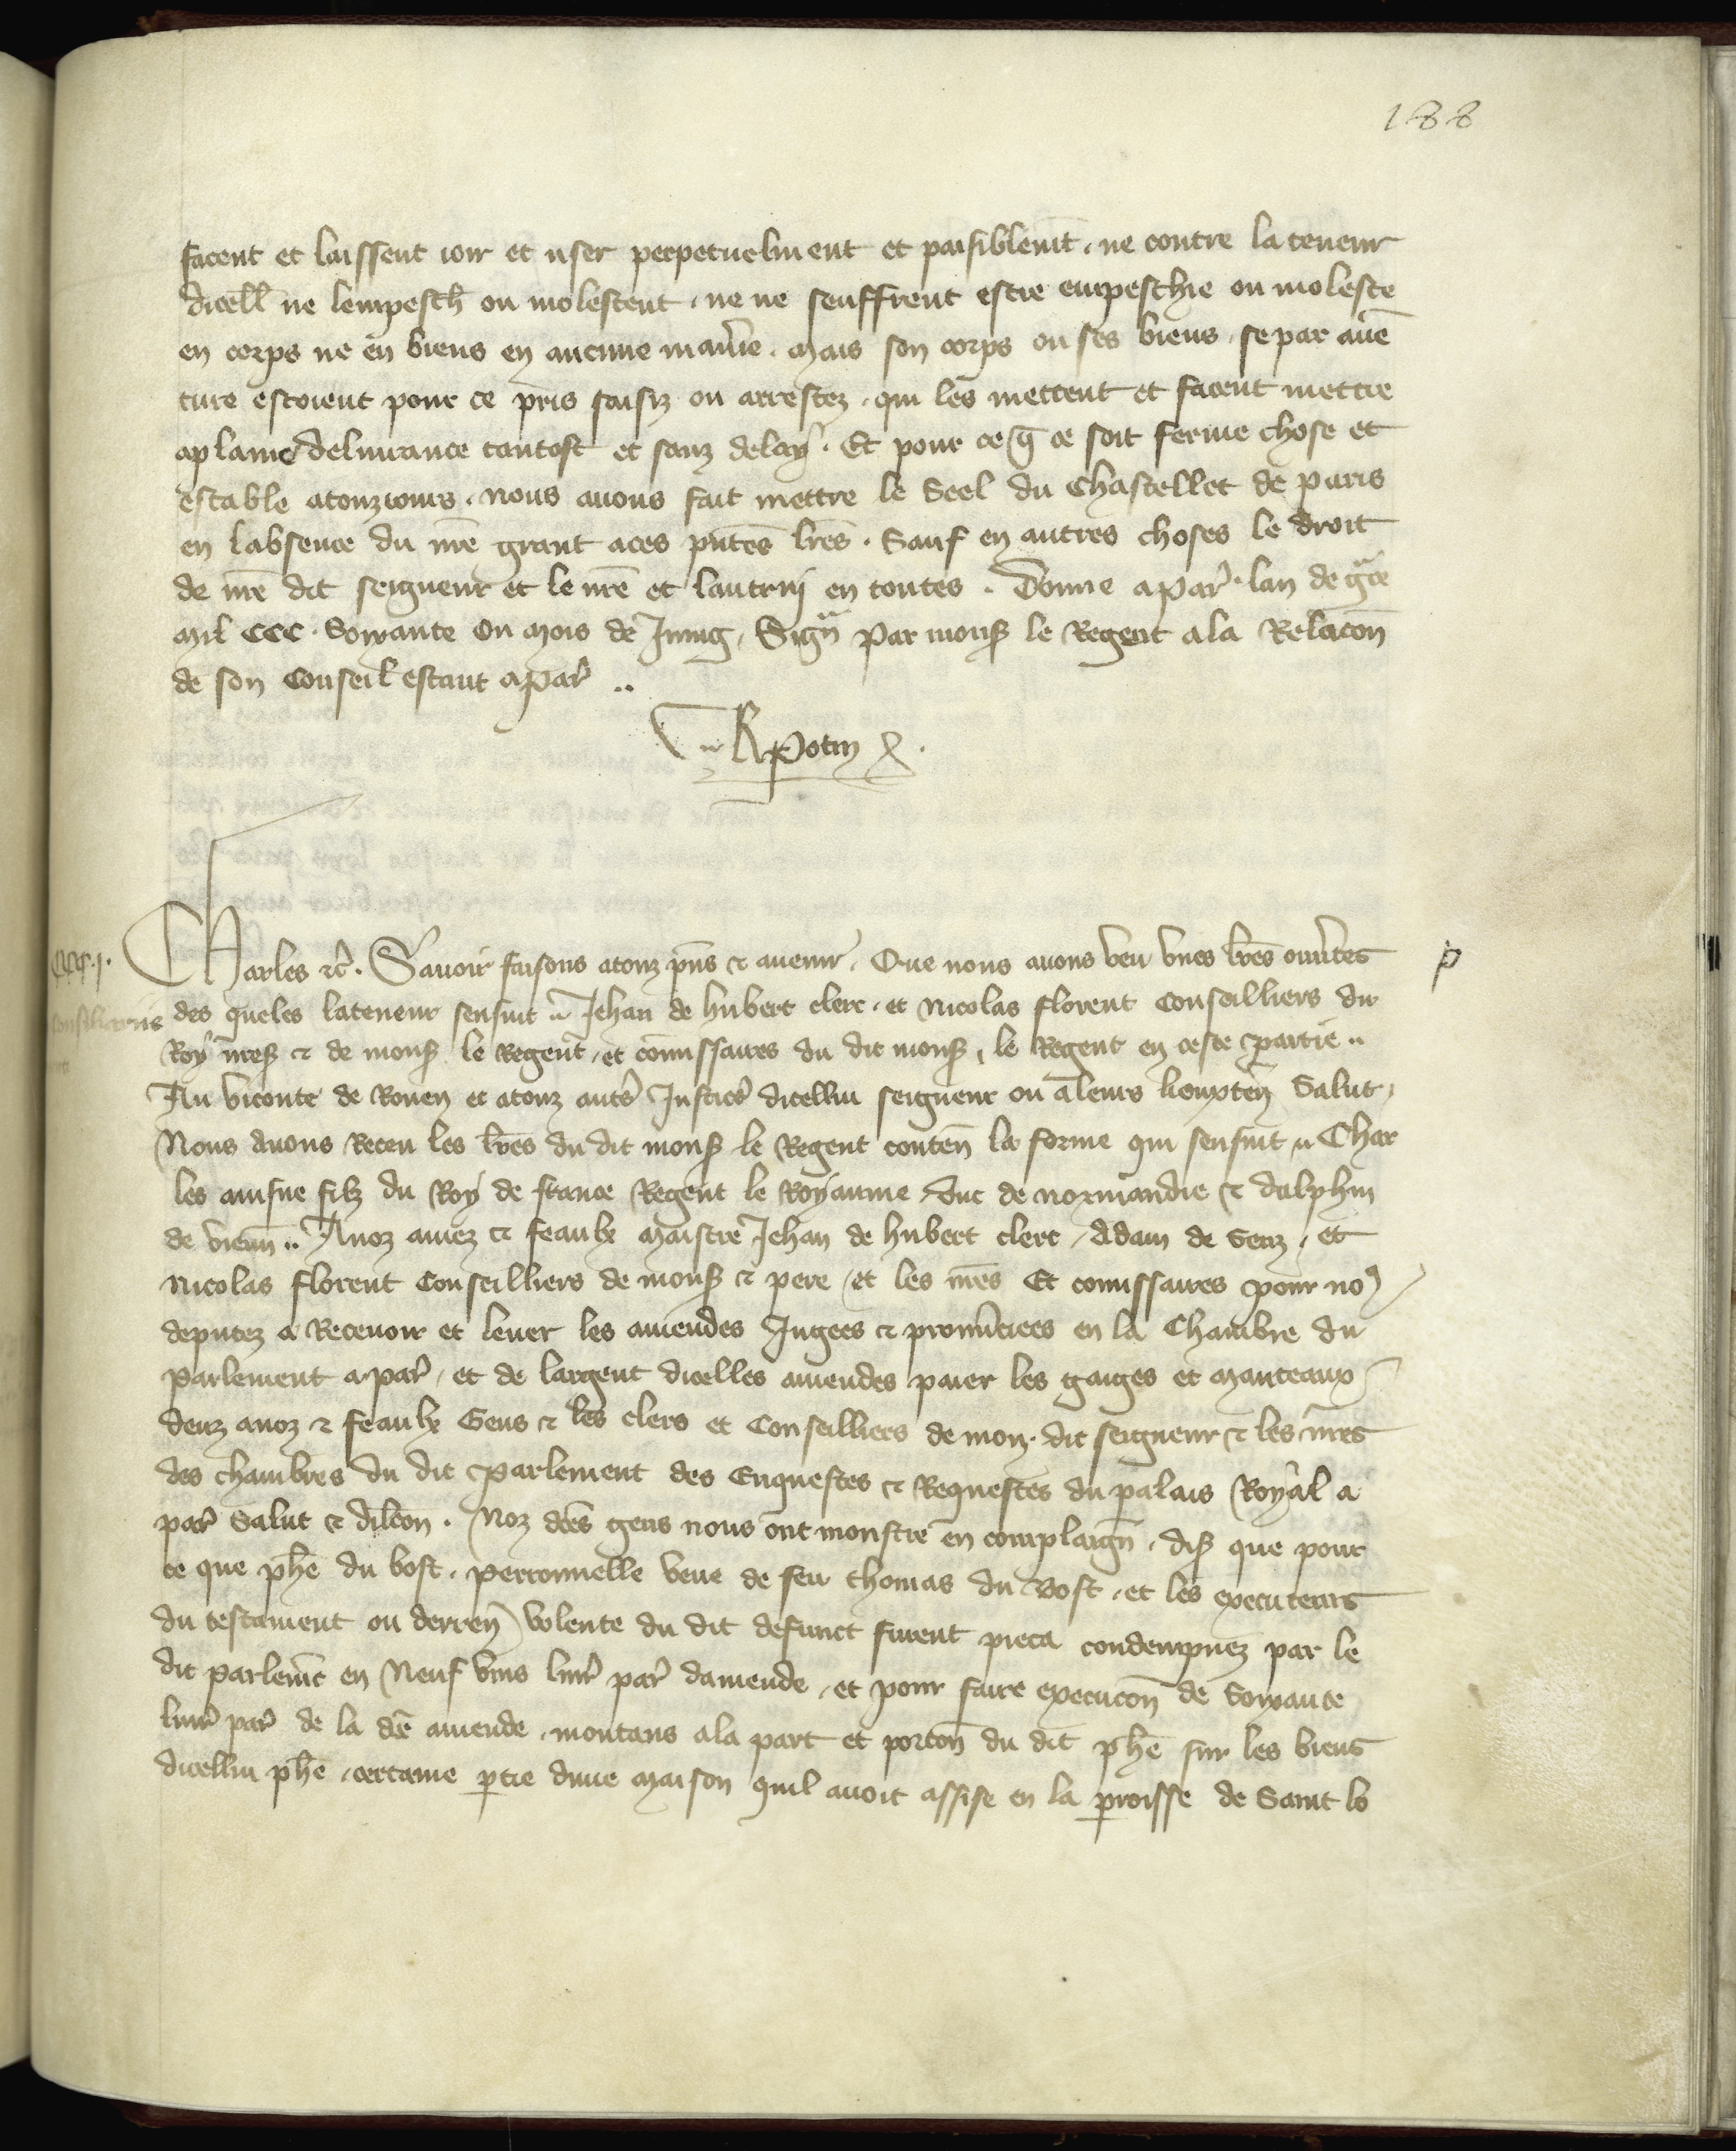 188
facent et laissent ioir et user perpetuelment et paisiblemt̄. ne contre la teneur
dicell̄ ne lempesch̄ ou molestent. ne ne seuffrent estre empeschie ou moleste
en corps ne en biens en aucune maniẽ. Mais son corps ou ses biens. se par auē
ture estoient pour ce pris saisiz ou arrestez. qui les mettent et facent mettre
a plaine deliurance tantost et sanz delay. Et pour ce q̄ ce soit ferme chose et
estable a touziours. nous auons fait mettre le Seel du Chastellet de paris
en labsence du nr̄e grant a ces pn̄tes lr̄es. Sauf en autres choses le droit
de nr̄e dit seigneur et le nr̄e et lautruy en toutes. Donne a Par̃. lan de gr̃ce
Mil CCC. Soixante Ou Mois de Juing. Sign̄ Par mons̃ le Regent a la Relacōn
de son Conseil estant a Par̃ ..
Potin
CCCC.j. Charles ꝛc̃. Sauoir faisons a touz pn̄s ⁊ auenir. Que nous auons veu vnes lr̄es ouũtes p
consiliariis des queles la teneur sensuit .. Jehan de hubert clerc. et Nicolas florent Conseilliers du
Roy nres̃ ⁊ de mons̃ le Regent. et cōmissaires du dit mons̃ le Regent en ceste partie ..
Au viconte de Rouen et a touz autr̃s Justic̃s dicellui seigneur ou a leurs lieuxten̄ Salut.
Nous auons Receu les lr̄es du dit mons̃ le Regent conten̄ la forme qui sensuit .. Char
les ainsne filz du Roy de france Regent le Royaume Duc de normandie ⁊ dalphin
de vienn̄ .. A noz amez ⁊ feaulx Maistre Jehan de hubert clerc. Adam de Senz. et
Nicolas florent Conseilliers de mons̃ ⁊ pere. et les nr̄es Et comissaires pour no᷒
deputez a Receuoir et leuer les amendes Jugees ⁊ pronũciees en la Chambre du
Parlement a par̃. et de largent dicelles amendes paier les gaiges et Manteaux
deuz a noz ⁊ feaulx Gens ⁊ les clers et Conseilliers de mon. dit seigneur ⁊ les nr̄es
des chambres du dit Parlement des Enquestes ⁊ Requestes du palais Royal a
par̃ Salut ⁊ dilcōn. Noz dc̄es gens nous ont monstre en complaign̄. dis̃ que pour
ce que ph̄e du bosc. perronnelle veue de feu thomas du Bosc. et les executeurs
du testament ou derren̄ volente du dit defunct furent pieca condempnez par le
dit parlemt̄ en Neuf vins liur̃ par̃ damende. et pour faire execucōn de Soixante
liur̃ par̃ de la dc̄e amende. montans a la part et porcōn du dit ph̄e sur les biens
dicellui ph̄e. certaine ꝑtie dune Maison quil auoit assise en la ꝑroisse de Saint lo